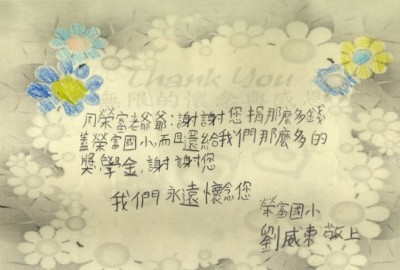 Thank You
周榮富老爺爺:謝謝您捐那麼多錢
蓋榮富國小,而且還給我們那麼多的
獎學金,謝謝您
我們永遠懷念您
榮富國小
劉威東敬上